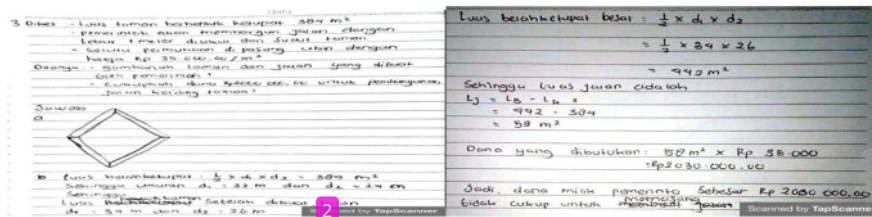 3 Diket : - Luas taman berbentuk ketupat 384 m²
- pemerintah akan membangun jalan dengan
lebar 1 meter diukur dari sudut taman
- seluruh permukaan di pasang ubin dengan
harga Rp 35.000.00/m²
Ditanya : - gambarlah taman dan jalan yang dibuat
oleh pemerintah !
- Cukupkah dana untuk pembangunan
jalan keliling taman ?
Jawab
a
b Luas belahketupat : 1/2 x d₁ x d₂ = 384 m²
Sehingga ukuran d₁ = 32 m dan d₂ = 24 m
Sehingga
Luas taman Setelah dibuat jalan
d₁ = 34 m dan d₂ = 26 m
2
Scanned by TapScanner
Luas belahketupat besar : 1/2 x d₁ x d₂
= 1/2 x 34 x 26
= 442 m²
Sehingga Luas jalan adalah
Lj = LB - Lk =
= 442 - 384
= 58 m²
Dana yang dibutuhkan : 58 m² x Rp 35.000
= Rp2030.000.00
Jadi, dana milik pemerinta Sebesar Rp 2000 000,00
tidak cukup untuk memasang jalan
Scanned by TapScanner